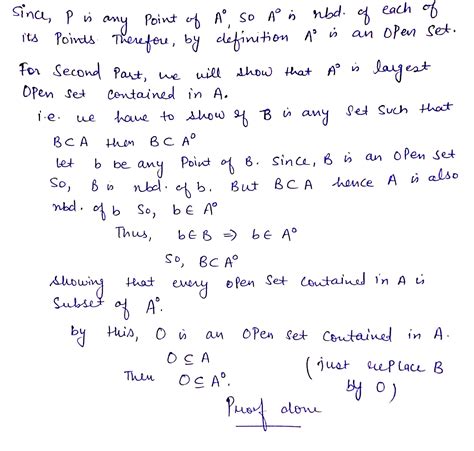 Since, P is any Point of A°, So A° is nbd. of each of
its Points Therefore, by definition A° is an open Set.
For Second Part, we will show that A° is largest
Open set contained in A.
i.e. we have to show if B is any Set such that
B⊂A then B⊂A°
let b be any Point of B. Since, B is an open set
So, B is nbd. of b. But B⊂A hence A is also
nbd. of b So, b∈A°
Thus, b∈B ⇒ b∈A°
So, B⊂A°
showing that every open Set Contained in A is
Subset of A°.
by this, O is an OPen set Contained in A.
O⊆A (just replace B
Then O⊆A°. by O)
Proof done